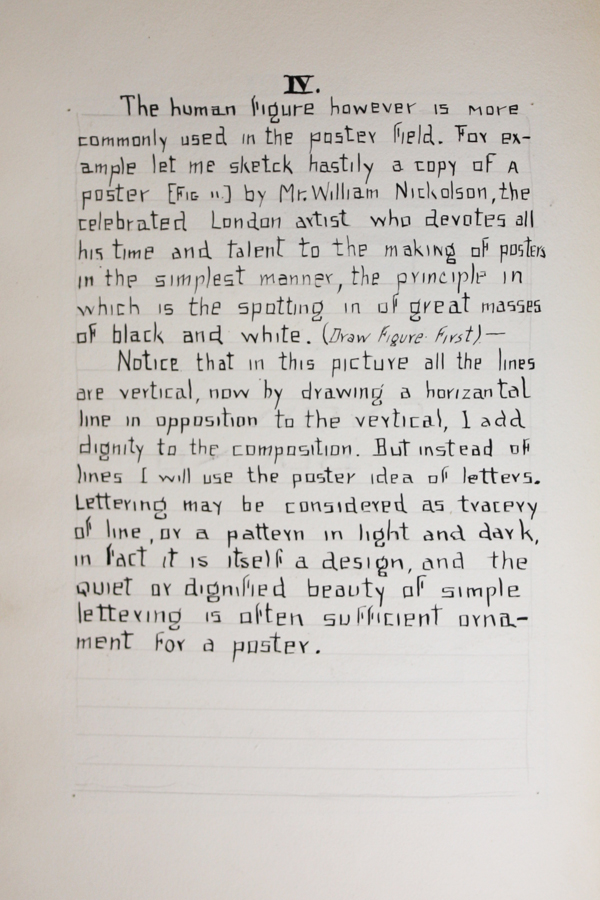 IV.
The human figure however is more
commonly used in the poster field. For ex-
ample let me sketch hastily a copy of a
poster [Fig 11.] by Mr. William Nickolson, the
celebrated London artist who devotes all
his time and talent to the making of posters
in the simplest manner, the principle in
which is the spotting in of great masses
of black and white. (Draw Figure First) —
Notice that in this picture all the lines
are vertical, now by drawing a horizantal
line in opposition to the vertical, I add
dignity to the composition. But instead of
lines I will use the poster idea of letters.
Lettering may be considered as tracery
of line, or a pattern in light and dark,
in fact it is itself a design, and the
quiet or dignified beauty of simple
lettering is often sufficient orna-
ment for a poster.